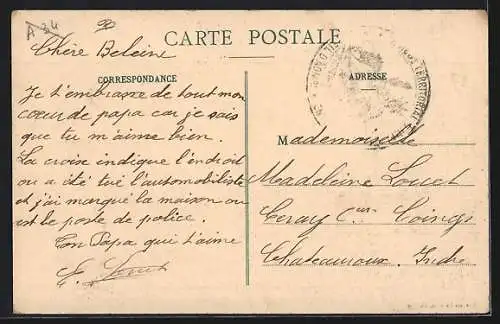 A 34
Chère Beleine
CARTE POSTALE
CORRESPONDANCE
ADRESSE
TERRITORIAL
Je t'embrasse de tout mon
coeur de papa car je sais
que tu m'aime bien.
La croise indique l'endroit
ou a été tué l'automobiliste
et j'ai marqué la maison ou
est le poste de police.
Ton Papa qui t'aime
Mademoiselle
Madeleine Louet
Ceray Cne Coings
Chateauroux. Indre